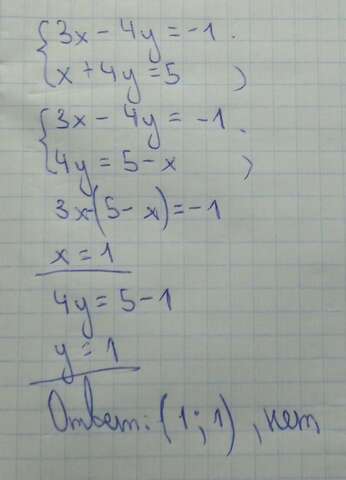 {3x - 4y = -1.
{x + 4y = 5 )
{3x - 4y = -1.
{4y = 5 - x )
3x-(5 - x) = -1
x = 1
4y = 5 - 1
y = 1
Ответ: (1; 1), нет